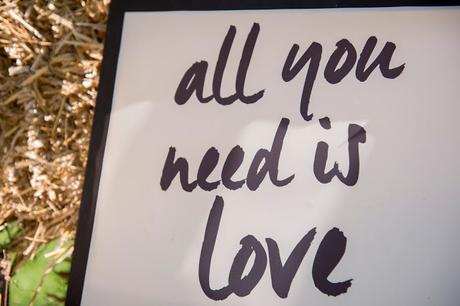 all you
need is
love